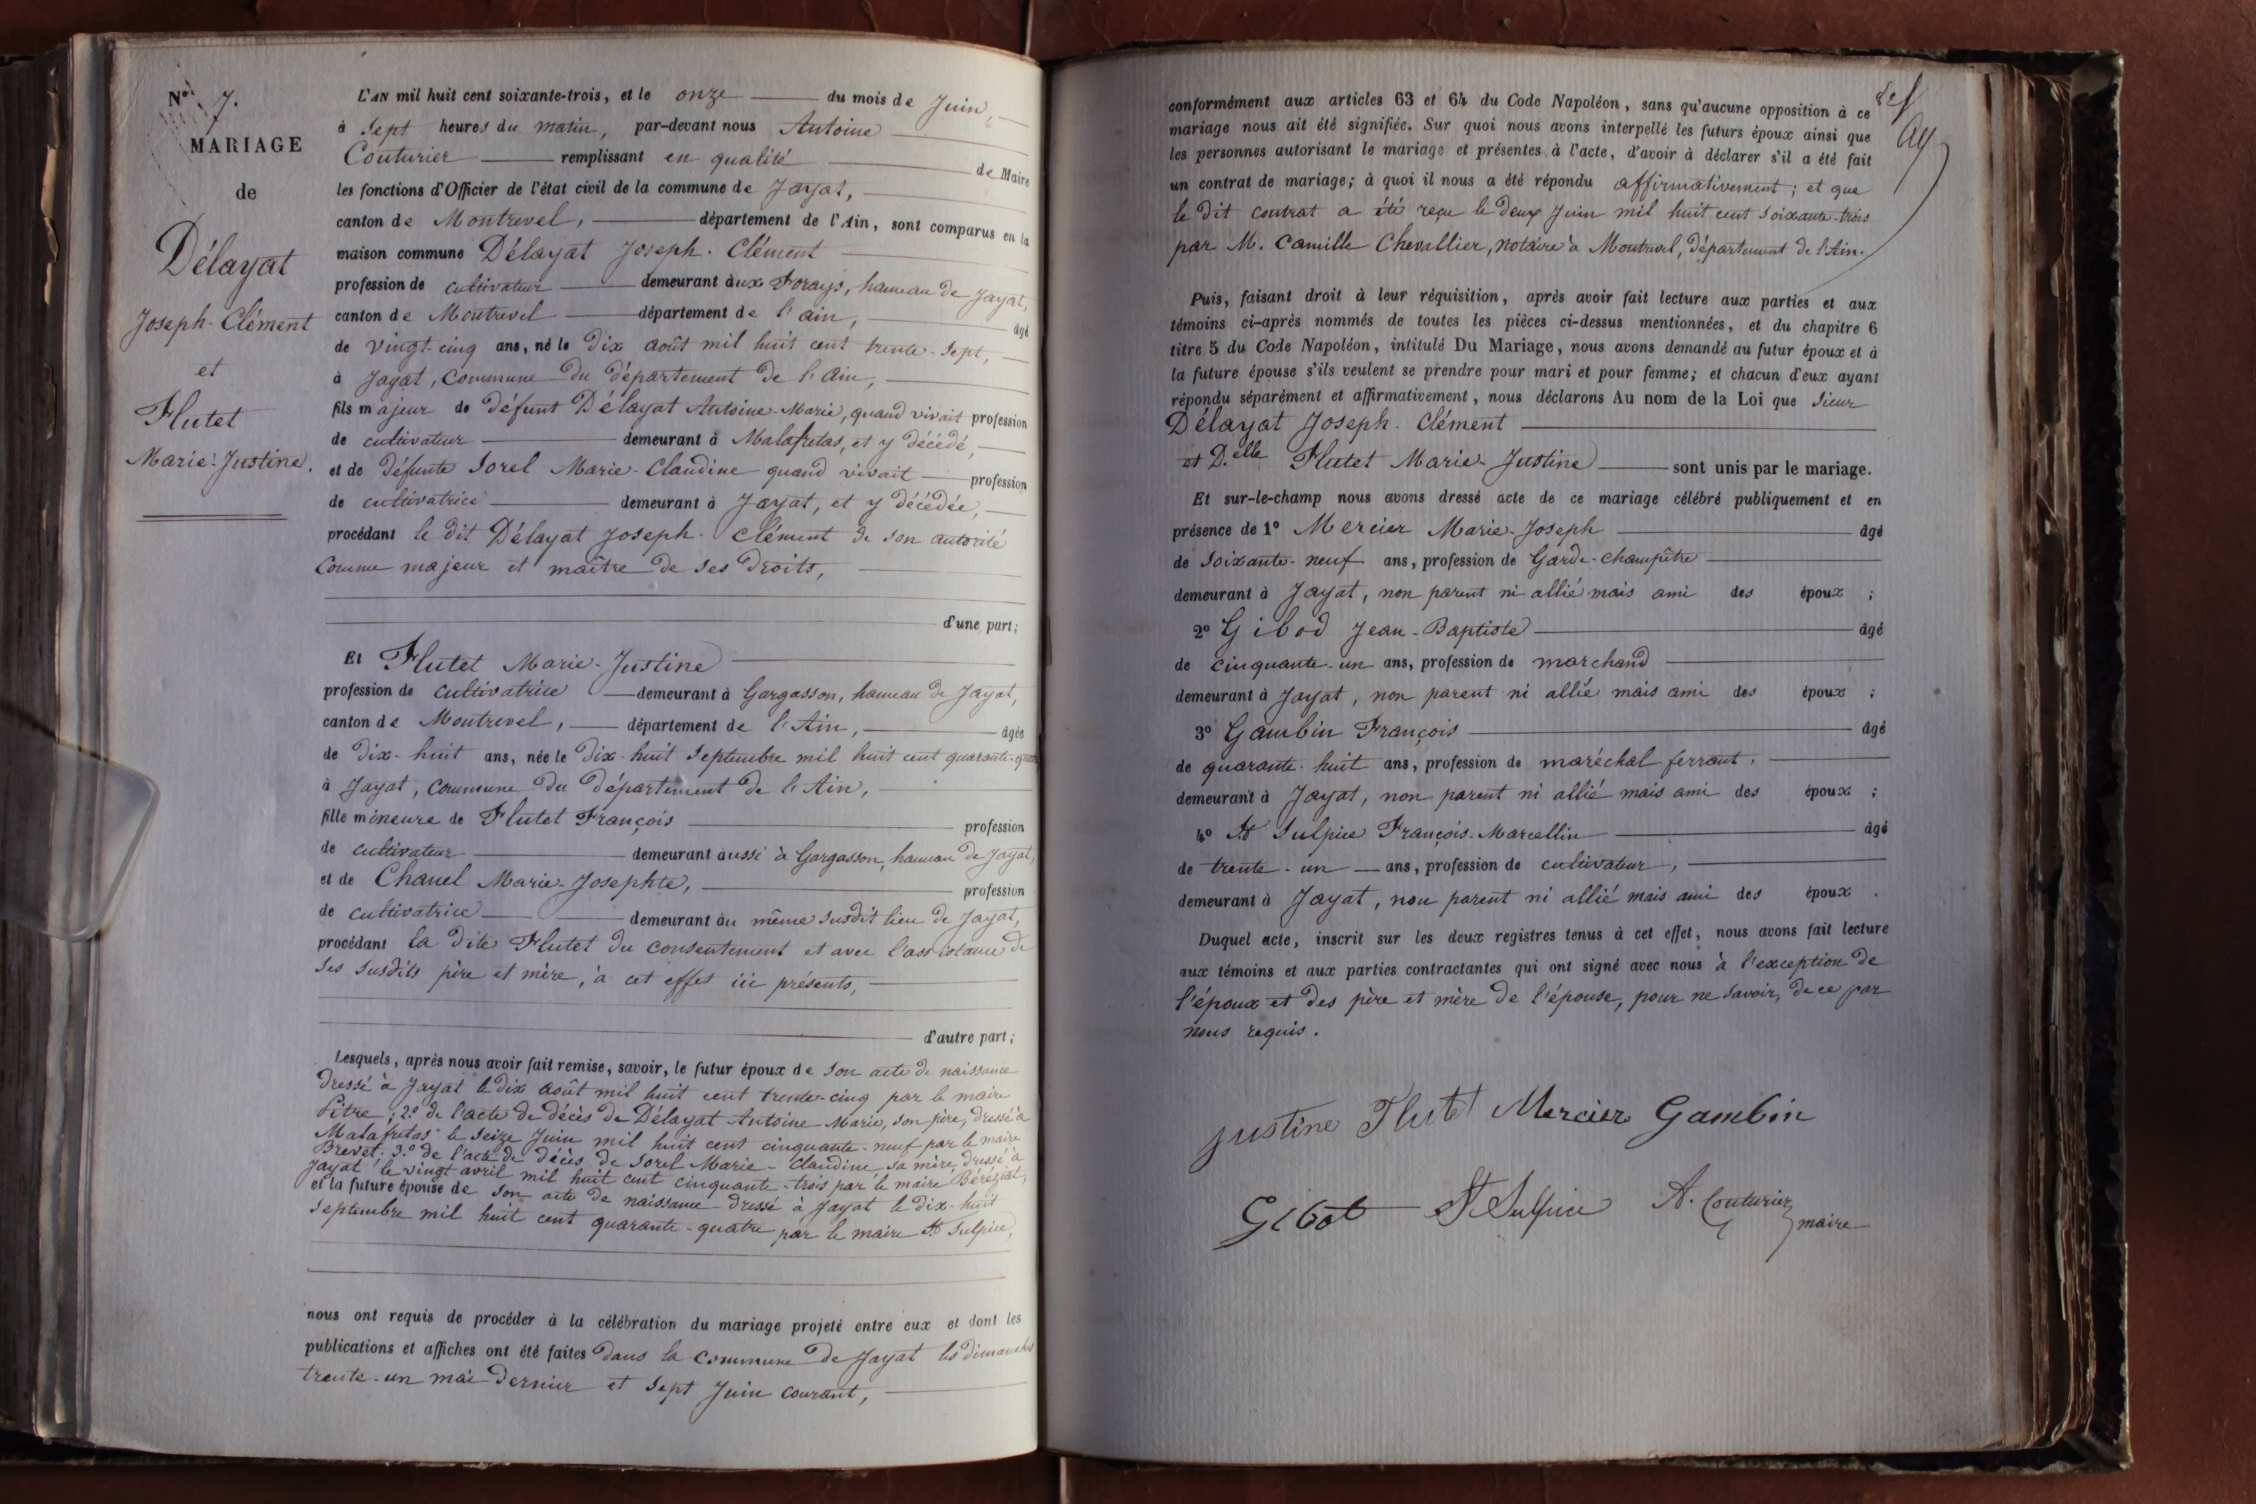 N° 7.
MARIAGE
de
Délayat
Joseph-Clément
et
Flutet
Marie-Justine.
L'AN mil huit cent soixante-trois, et le onze du mois de Juin,
à sept heures du matin, par-devant nous Antoine
Couturier remplissant en qualité de Maire
les fonctions d'Officier de l'état civil de la commune de Jayat,
canton de Montrevel, département de l'Ain, sont comparus en la
maison commune Délayat Joseph-Clément
profession de cultivateur demeurant aux Forays, hameau de Jayat,
canton de Montrevel département de l'ain, âgé
de vingt-cinq ans, né le dix août mil huit cent trente-sept,
à Jayat, commune du département de l'Ain,
fils majeur de défunt Délayat Antoine-Marie, quand vivait profession
de cultivateur demeurant à Malafretas, et y décédé,
et de défunte Sorel Marie-Claudine quand vivait profession
de cultivatrice demeurant à Jayat, et y décédée,
procédant le dit Délayat Joseph-Clément de son autorité
comme majeur et maître de ses droits,
d'une part;
Et Flutet Marie-Justine
profession de cultivatrice demeurant à Gargasson, hameau de Jayat,
canton de Montrevel, département de l'Ain, âgée
de dix-huit ans, née le dix-huit Septembre mil huit cent quarante-quatre
à Jayat, commune du département de l'Ain,
fille mineure de Flutet François profession
de cultivateur demeurant aussi à Gargasson, hameau de Jayat,
et de Chanel Marie-Josephte, profession
de cultivatrice demeurant au même susdit lieu de Jayat,
procédant la dite Flutet du consentement et avec l'assistance de
ses susdits père et mère, à cet effet ici présents,
d'autre part;
Lesquels, après nous avoir fait remise, savoir, le futur époux de son acte de naissance
dressé à Jayat le dix août mil huit cent trente-cinq par le maire
Pitre; 2° de l'acte de décès de Délayat Antoine Marie, son père, dressé à
Malafretas le seize Juin mil huit cent cinquante-neuf par le maire
Brevet; 3° de l'acte de décès de Sorel Marie-Claudine sa mère dressé à
Jayat le vingt avril mil huit cent cinquante-trois par le maire Béréziat,
et la future épouse de son acte de naissance dressé à Jayat le dix-huit
Septembre mil huit cent quarante-quatre par le maire St Sulpice,
nous ont requis de procéder à la célébration du mariage projeté entre eux et dont les
publications et affiches ont été faites dans la commune de Jayat les dimanches
trente-un mai dernier et sept Juin courant,
conformément aux articles 63 et 64 du Code Napoléon, sans qu'aucune opposition à ce
mariage nous ait été signifiée. Sur quoi nous avons interpellé les futurs époux ainsi que
les personnes autorisant le mariage et présentes à l'acte, d'avoir à déclarer s'il a été fait
un contrat de mariage; à quoi il nous a été répondu affirmativement; et que
le dit contrat a été reçu le deux Juin mil huit cent soixante-trois
par M. Camille Chevallier, notaire à Montrevel, département de l'Ain.
Puis, faisant droit à leur réquisition, après avoir fait lecture aux parties et aux
témoins ci-après nommés de toutes les pièces ci-dessus mentionnées, et du chapitre 6
titre 5 du Code Napoléon, intitulé Du Mariage, nous avons demandé au futur époux et à
la future épouse s'ils veulent se prendre pour mari et pour femme; et chacun d'eux ayant
répondu séparément et affirmativement, nous déclarons Au nom de la Loi que sieur
Délayat Joseph-Clément
et D.elle Flutet Marie-Justine sont unis par le mariage.
Et sur-le-champ nous avons dressé acte de ce mariage célébré publiquement et en
présence de 1° Mercier Marie-Joseph âgé
de soixante-neuf ans, profession de Garde-champêtre
demeurant à Jayat, non parent ni allié mais ami des époux ;
2° Gibod Jean-Baptiste âgé
de cinquante-un ans, profession de marchand
demeurant à Jayat, non parent ni allié mais ami des époux ;
3° Gambin François âgé
de quarante-huit ans, profession de maréchal ferrant,
demeurant à Jayat, non parent ni allié mais ami des époux ;
4° St Sulpice François-Marcellin âgé
de trente-un ans, profession de cultivateur,
demeurant à Jayat, non parent ni allié mais ami des époux .
Duquel acte, inscrit sur les deux registres tenus à cet effet, nous avons fait lecture
aux témoins et aux parties contractantes qui ont signé avec nous à l'exception de
l'époux et des père et mère de l'épouse, pour ne savoir, de ce par
nous requis.
justine Flutet Mercier Gambin
Gibot St Sulpice A. Couturier
maire